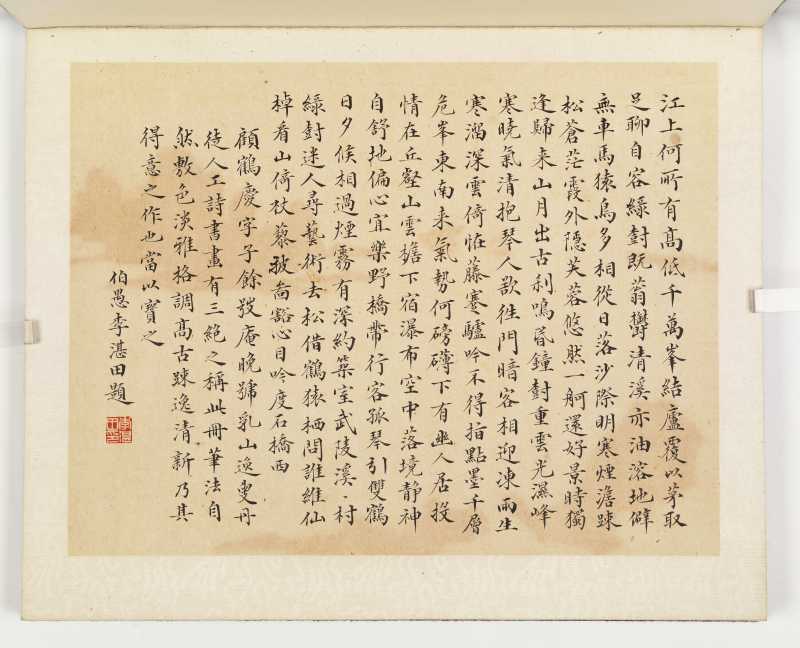 江上何所有高低千萬峯結廬覆以茅取
足聊自容綠樹既蓊鬱清溪亦油溶地僻
無車馬猿鳥多相從日落沙際明寒煙澹疎
松蒼茫霞外隱芙蓉悠然一舸還好景時獨
逢歸来山月出古刹鳴昏鐘樹重雲光濕峰
寒曉氣清抱琴人欲往門暗客相迎凍雨生
寒淵深雲倚怪藤蹇驢吟不得指點墨千層
危峯東南来氣勢何磅礴下有幽人居投
情在丘壑山雲檐下宿瀑布空中落境靜神
自舒地偏心宜樂野橋帶行客孤琴引雙鶴
日夕候相過煙霧有深約築室武陵溪、村
綠樹迷人尋藝術去松借鶴猿栖問誰維仙
棹看山倚杖藜披啚豁心目吟度石橋西
顧鶴慶字子餘弢庵晚號乳山逸叟丹
徒人工詩書畫有三絕之稱此冊筆法自
然敷色淡雅格調高古疎逸清新乃其
得意之作也當以寶之
伯愚李湛田題